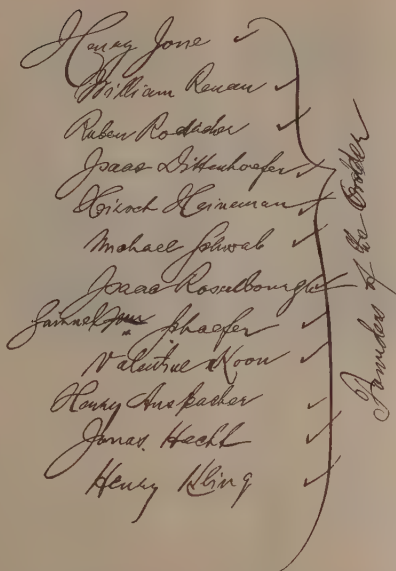 Henry Jone
William Renau
Ruben Rodacher
Isaac Dittenhoefer
Hirsch Heineman
Michael Schwab
Isaac Rosenbourgh
Samuel Schaefer
Valentine Koon
Henry Anspacher
Jonas Hecht
Henry Kling
Founders of the Order